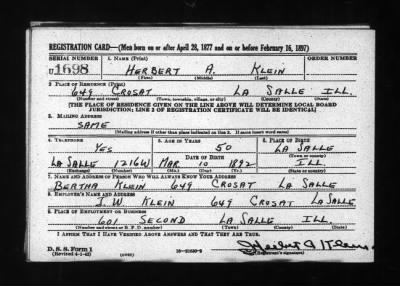 REGISTRATION CARD—(Men born on or after April 28, 1877 and on or before February 16, 1897)
SERIAL NUMBER 1. NAME (Print) ORDER NUMBER
U 1698 HERBERT A. KLEIN
(First) (Middle) (Last)
2. PLACE OF RESIDENCE (Print)
649 CROSAT LA SALLE ILL.
(Number and street) (Town, township, village, or city) (County) (State)
[THE PLACE OF RESIDENCE GIVEN ON THE LINE ABOVE WILL DETERMINE LOCAL BOARD
JURISDICTION; LINE 2 OF REGISTRATION CERTIFICATE WILL BE IDENTICAL]
3. MAILING ADDRESS
SAME
[Mailing address if other than place indicated on line 2. If same insert word same]
4. TELEPHONE 5. AGE IN YEARS 6. PLACE OF BIRTH
YES 50 LA SALLE
DATE OF BIRTH (Town or county)
LA SALLE 1216W MAR 10 1892 ILL.
(Exchange) (Number) (Mo.) (Day) (Yr.) (State or country)
7. NAME AND ADDRESS OF PERSON WHO WILL ALWAYS KNOW YOUR ADDRESS
BERTHA KLEIN 649 CROSAT LA SALLE
8. EMPLOYER'S NAME AND ADDRESS
J. W. KLEIN 649 CROSAT LA SALLE
9. PLACE OF EMPLOYMENT OR BUSINESS
601 SECOND LA SALLE ILL.
(Number and street or R. F. D. number) (Town) (County) (State)
I AFFIRM THAT I HAVE VERIFIED ABOVE ANSWERS AND THAT THEY ARE TRUE.
D. S. S. Form 1
(Revised 4-1-42) (over) Herbert A Klein
(Registrant's signature)